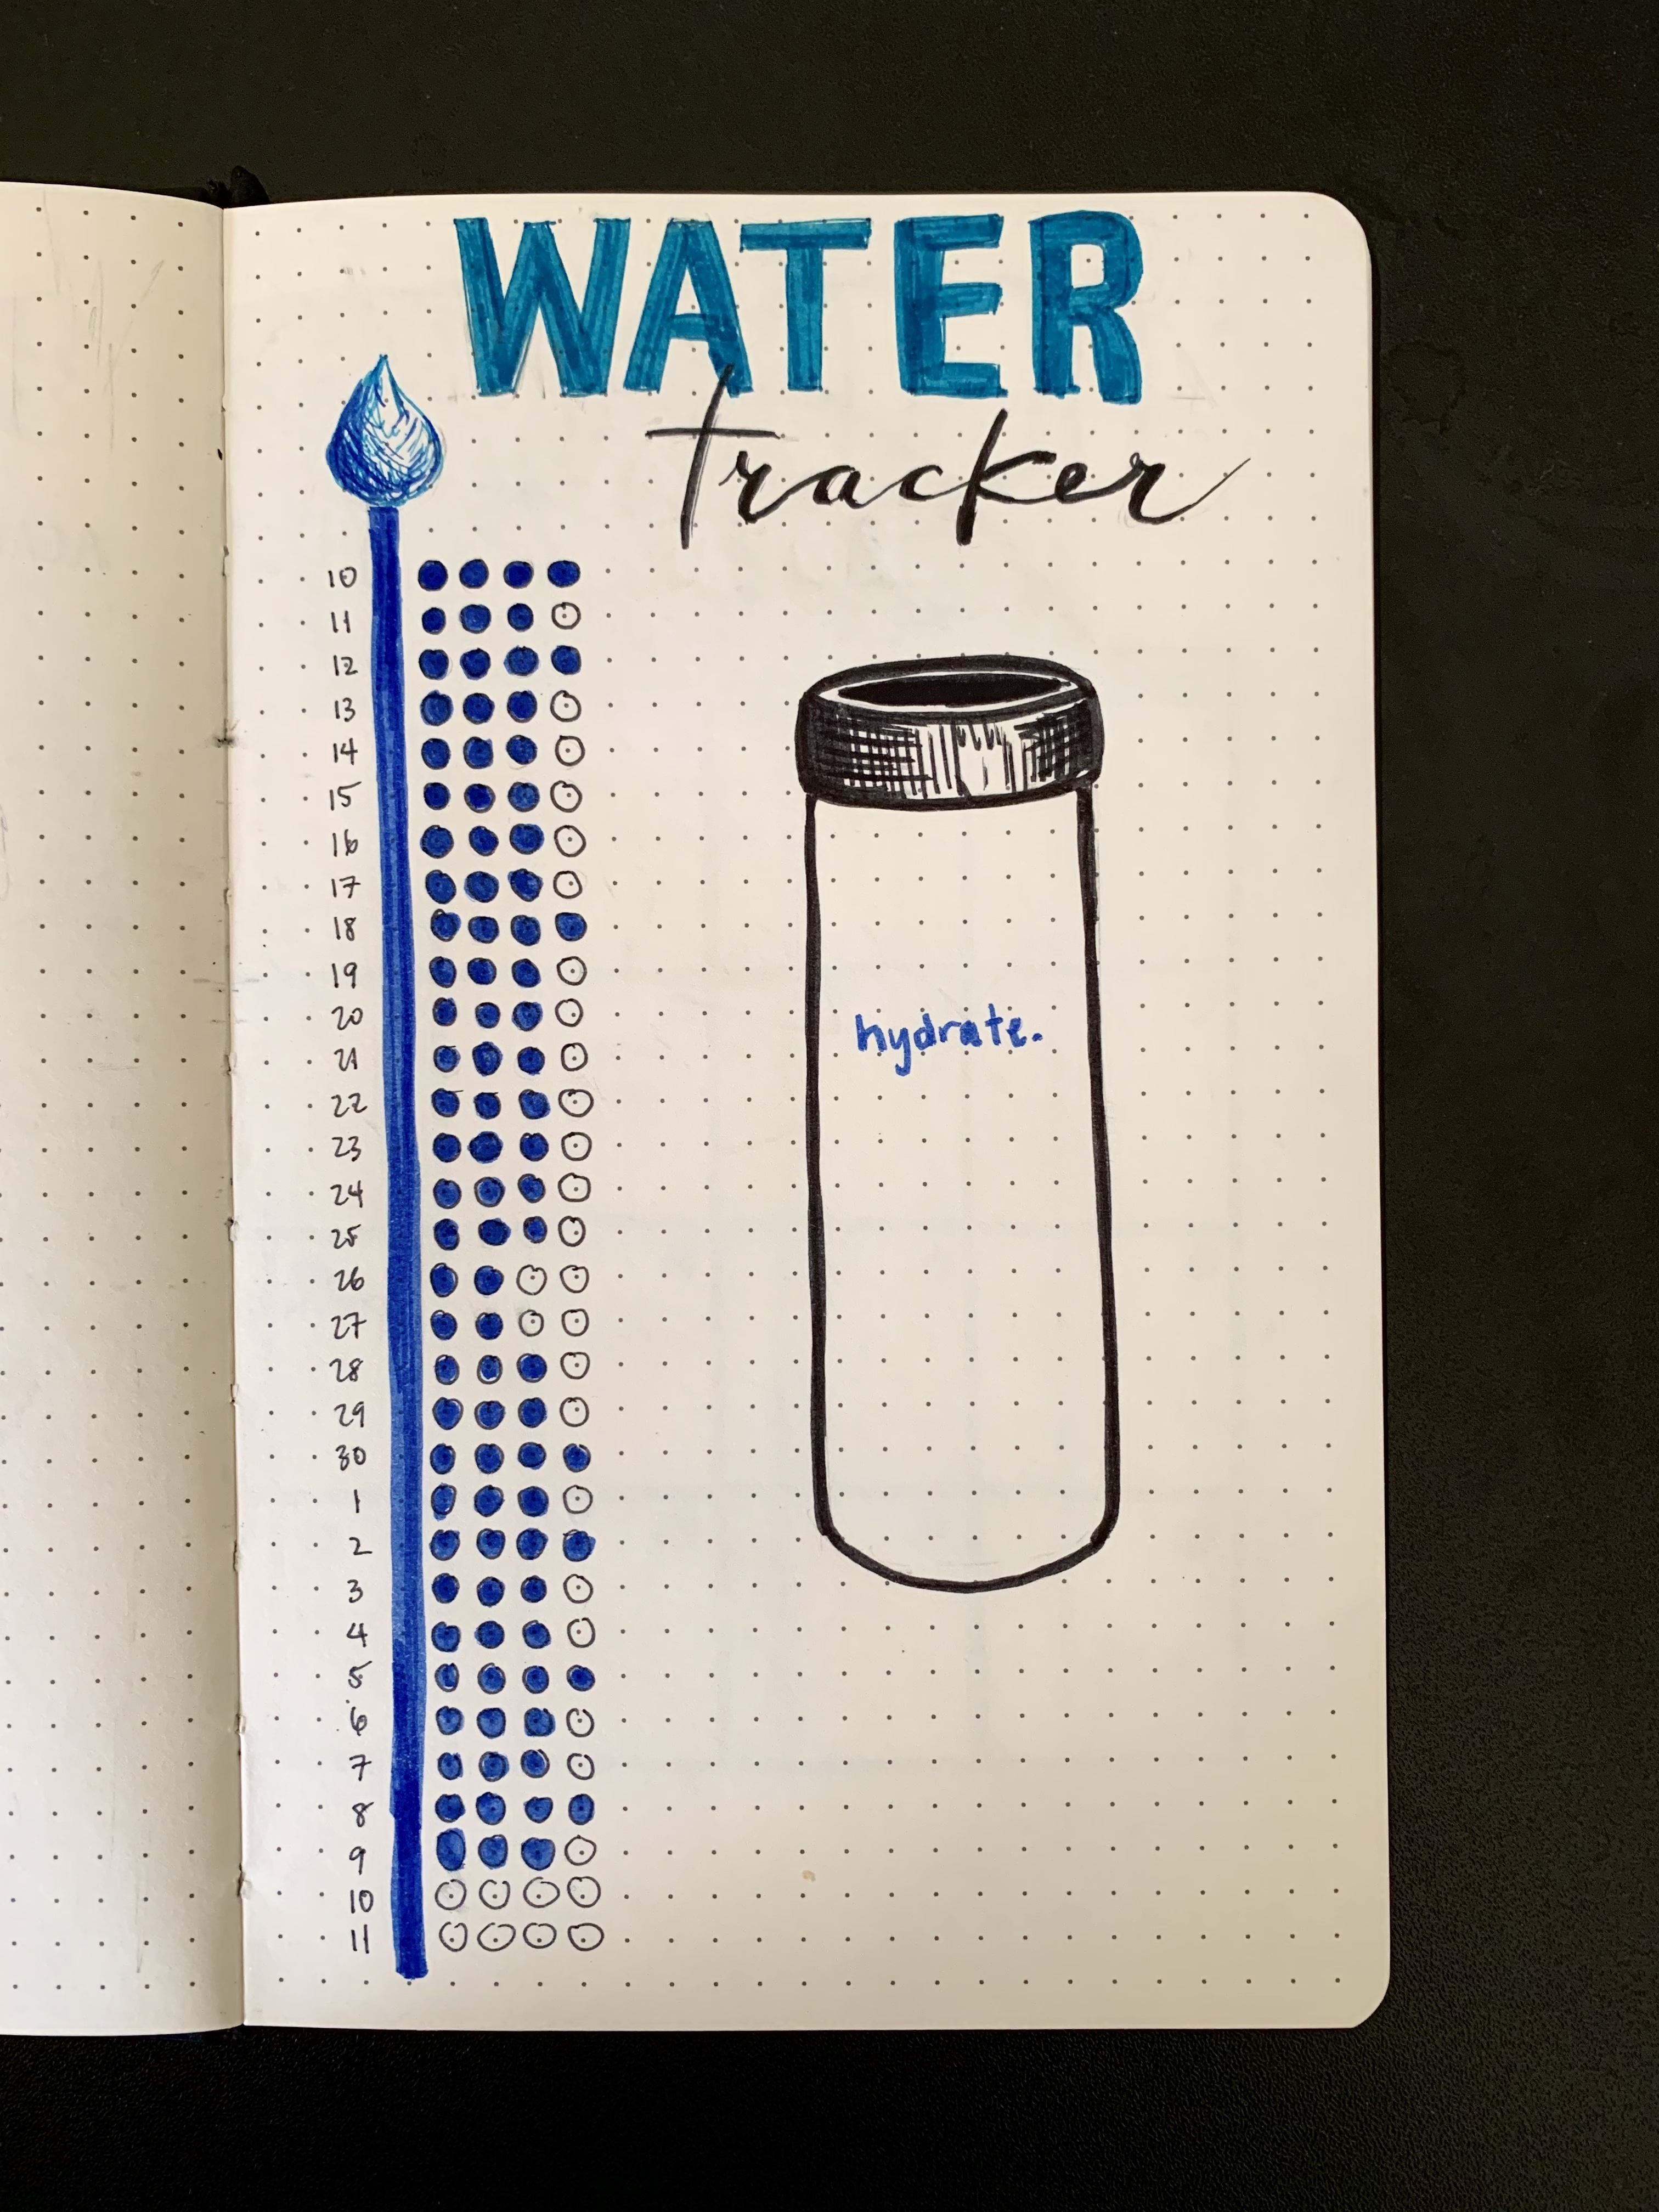 WATER
tracker
10
11
12
13
14
15
16
17
18
19
20
hydrate.
21
22
23
24
25
26
27
28
29
30
1
2
3
4
5
6
7
8
9
10
11